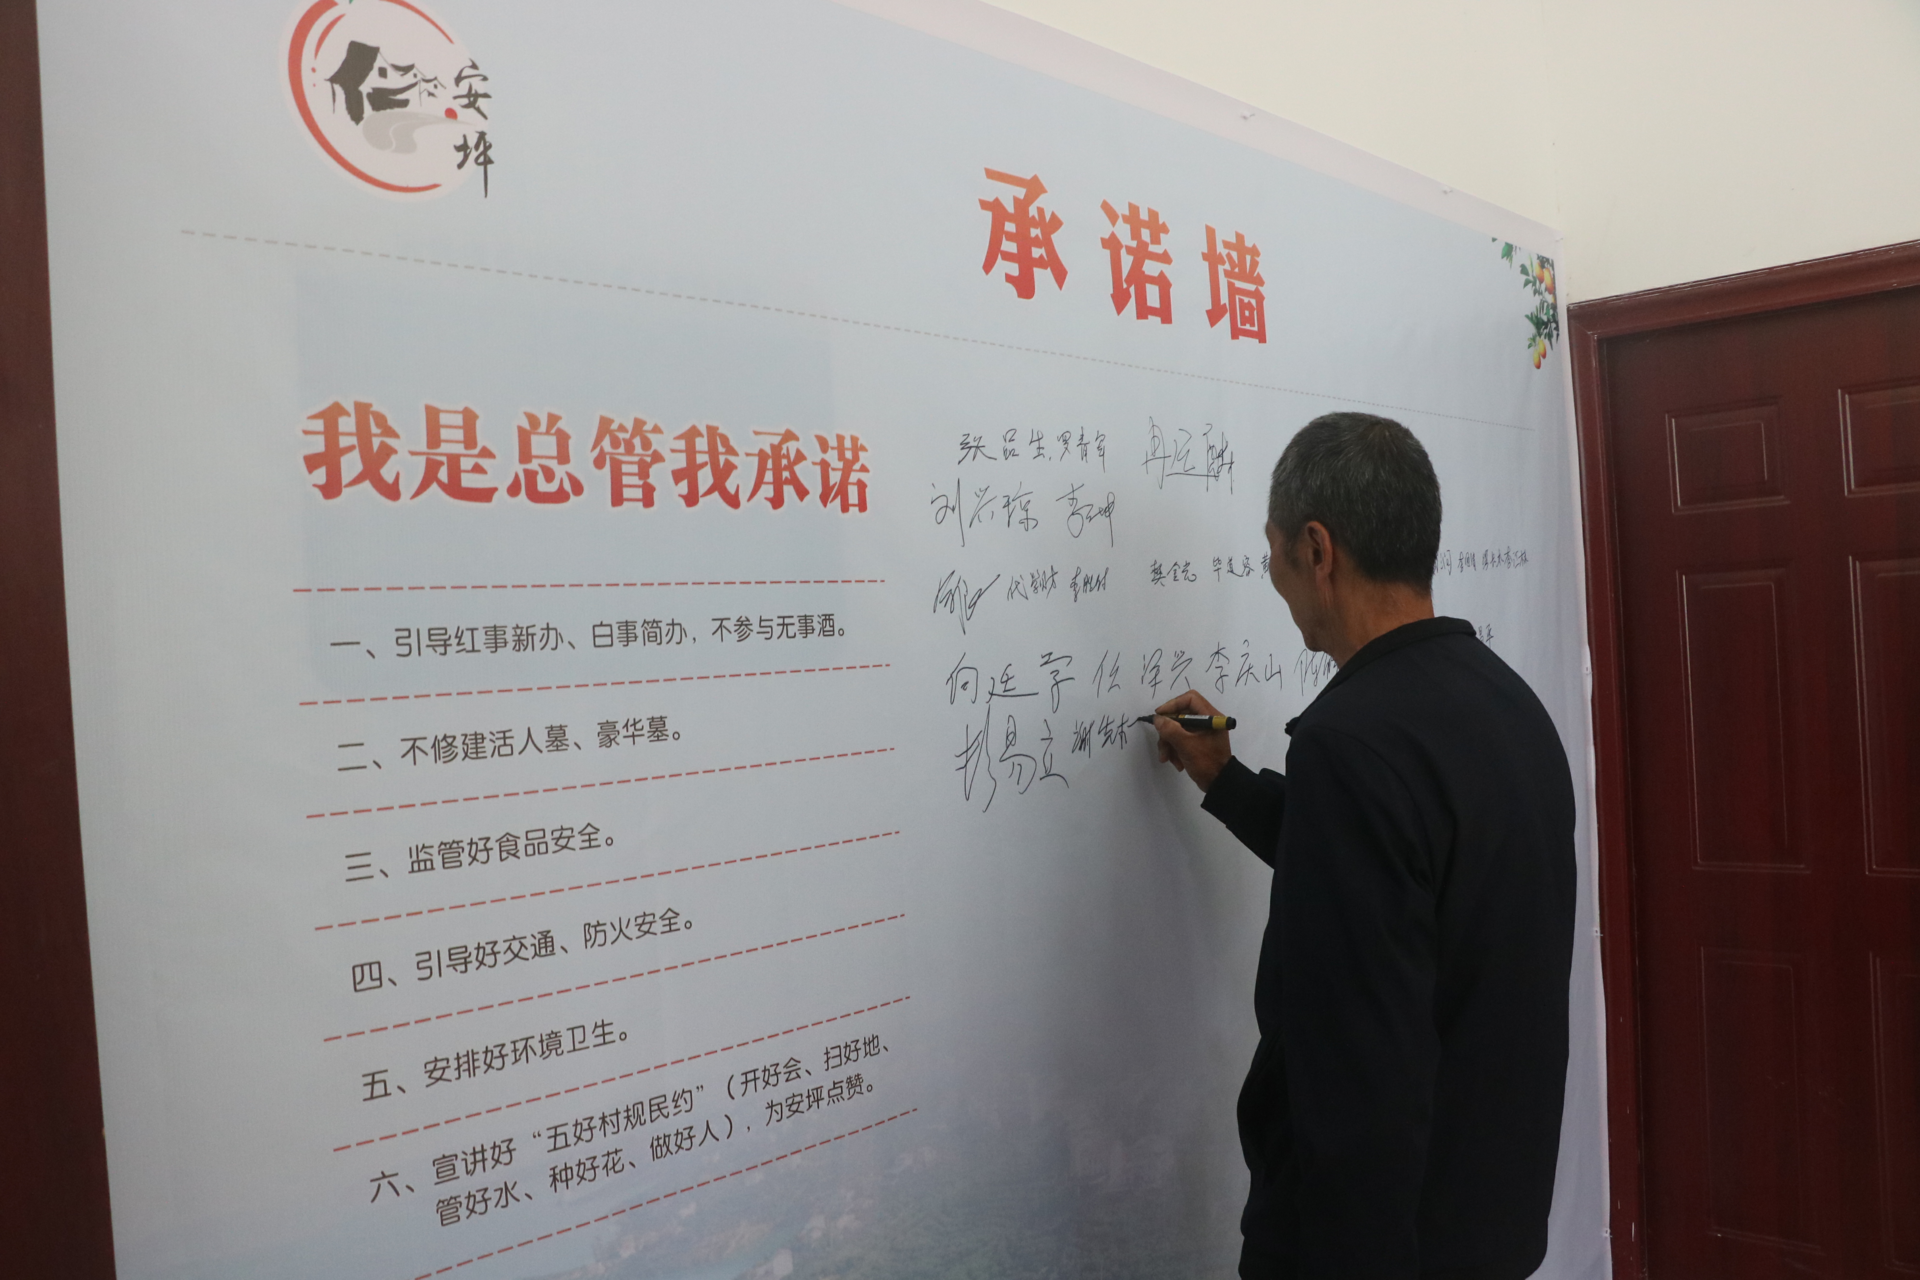 安坪
承诺墙
我是总管我承诺
一、引导红事新办、白事简办，不参与无事酒。
二、不修建活人墓、豪华墓。
三、监管好食品安全。
四、引导好交通、防火安全。
五、安排好环境卫生。
六、宣讲好“五好村规民约”（开好会、扫好地、
管好水、种好花、做好人），为安坪点赞。
张品生 罗青军
刘兴琼 李坤
向廷学 任泽兴 李庆山
彭易立